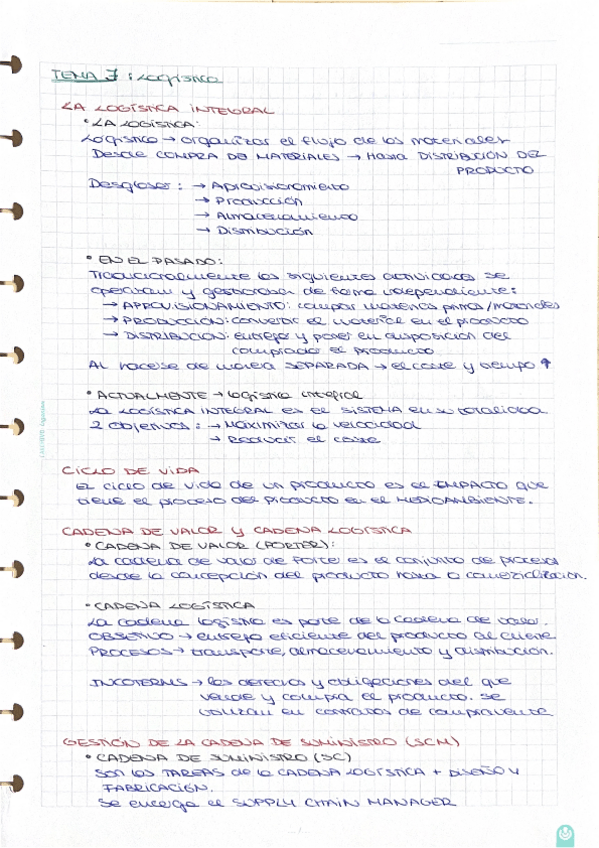 TEMA 7: Logística
LA LOGÍSTICA INTEGRAL
• LA LOGÍSTICA:
Logística → organizar el flujo de los materiales
Desde COMPRA DE MATERIALES → Hasta DISTRIBUCIÓN DEL
PRODUCTO
Desglosar: → Aprovisionamiento
→ Producción
→ Almacenamiento
→ Distribución
• EN EL PASADO:
Tradicionalmente las siguientes actividades se
operaban y gestionaban de forma independiente:
→ APROVISIONAMIENTO: comprar materias primas/materiales
→ PRODUCCIÓN: convertir el material en el producto
→ DISTRIBUCIÓN: entregar y poner en disposición del
comprador el producto
Al hacerse de manera SEPARADA → el coste y tiempo ↑
• ACTUALMENTE → logística integral
LA LOGÍSTICA INTEGRAL es el SISTEMA en su totalidad
2 objetivos: → Maximizar la velocidad
→ Reducir el coste
CICLO DE VIDA
El ciclo de vida de un producto es el IMPACTO que
tiene el proceso del producto en el MEDIOAMBIENTE.
CADENA DE VALOR Y CADENA LOGÍSTICA
• CADENA DE VALOR (PORTER):
La cadena de valor de Porter es el conjunto de procesos
desde la concepción del producto hasta la comercialización.
• CADENA LOGÍSTICA
La cadena logística es parte de la cadena de valor.
OBJETIVO → entrega eficiente del producto al cliente
PROCESOS → transporte, almacenamiento y distribución.
INCOTERMS → los derechos y obligaciones del que
vende y compra el producto. Se
utilizan en contratos de compraventa
GESTIÓN DE LA CADENA DE SUMINISTRO (SCM)
• CADENA DE SUMINISTRO (SC)
Son las TAREAS de la CADENA LOGÍSTICA + DISEÑO Y
FABRICACIÓN.
Se encarga el SUPPLY CHAIN MANAGER